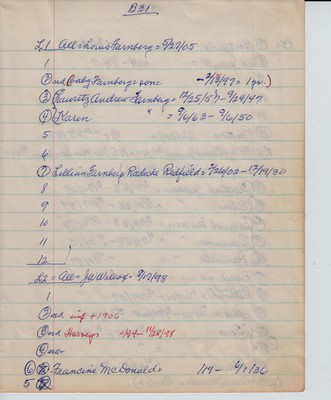 B31
L1 All = Louis Farnberg = 9/27/05
1
② nd (baby Farnberg = sone - 2/13/97 = 1 gr.)
③ Lauritz Andrew Farnberg = 12/25/57 - 9/24/47
④ Karen " = 9/6/63 - 9/6/50
5
6
⑦ Lillian Farnberg Radicke Redfield = 7/26/02 - 12/19/30
8
9
10
11
12
L2 = All = JW Wilcox = 9/17/98
1
nd inf + 1906
nd Harveys 11/28/98
⑥ Francine McDonald = 1/19 - 6/1/36
5